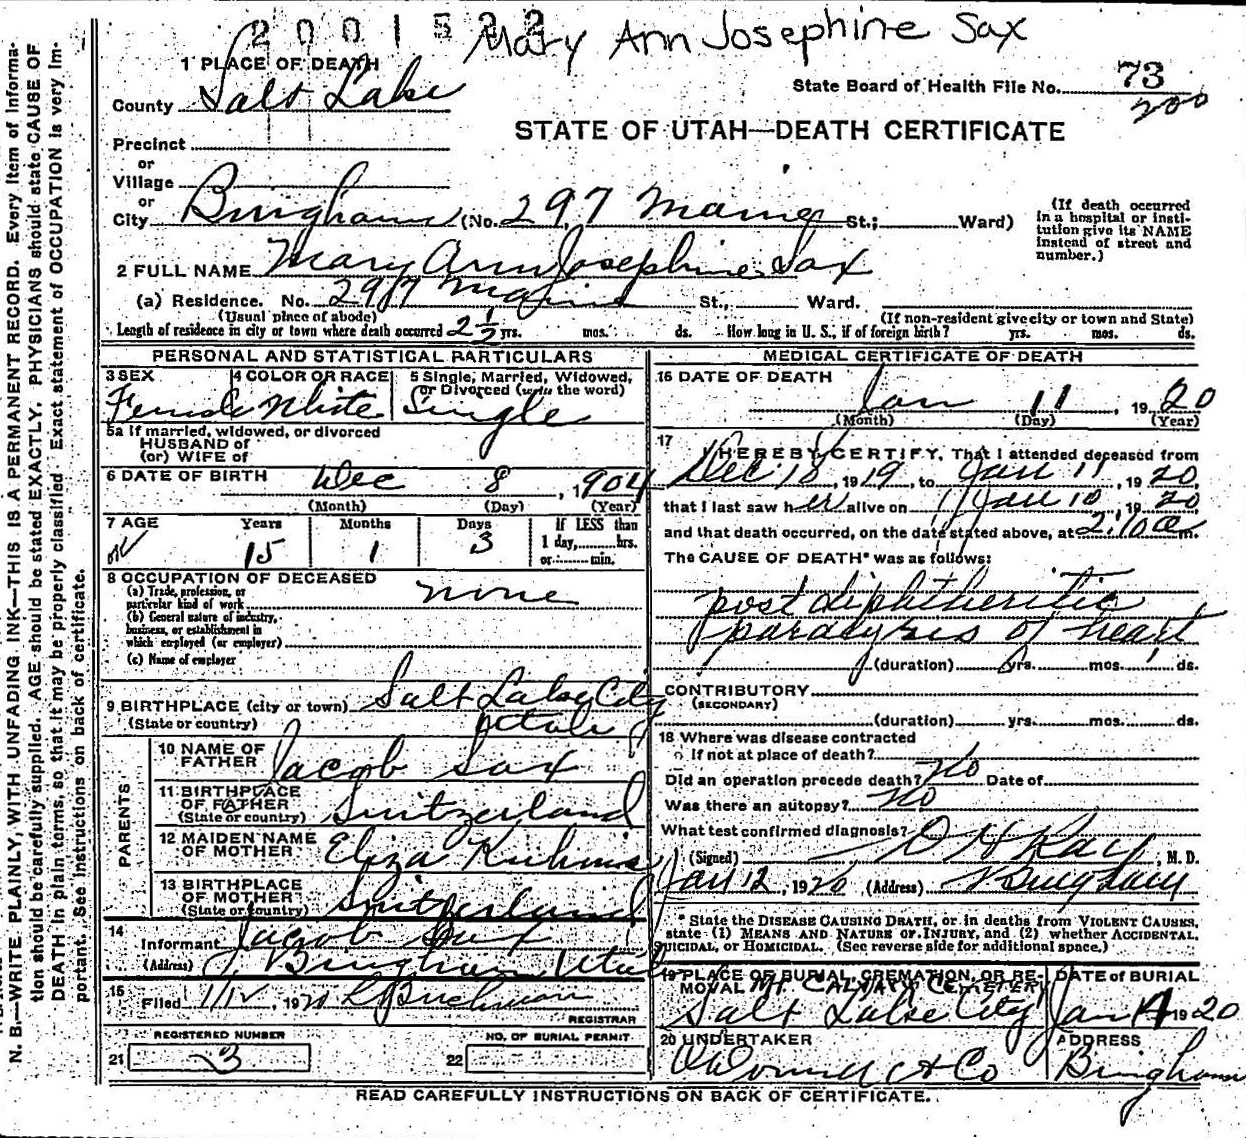 2001522
Mary Ann Josephine Sax
1 PLACE OF DEATH
County Salt Lake
State Board of Health File No. 73
200
STATE OF UTAH—DEATH CERTIFICATE
Precinct
or
Village
or
City Bingham (No. 297 Maine St.; Ward)
(If death occurred in a hospital or institution give its NAME instead of street and number.)
2 FULL NAME Mary Ann Josephine Sax
(a) Residence. No. 297 Maine St., Ward.
(Usual place of abode) (If non-resident give city or town and State)
Length of residence in city or town where death occurred 2 1/2 yrs. mos. ds. How long in U. S., if of foreign birth? yrs. mos. ds.
PERSONAL AND STATISTICAL PARTICULARS
3 SEX 4 COLOR OR RACE 5 Single, Married, Widowed, or Divorced (write the word)
Female White Single
5a If married, widowed, or divorced
HUSBAND of
(or) WIFE of
6 DATE OF BIRTH Dec 8, 1904
(Month) (Day) (Year)
7 AGE Years Months Days If LESS than
1 day, hrs.
or min.
15 1 3
8 OCCUPATION OF DECEASED
(a) Trade, profession, or
particular kind of work none
(b) General nature of industry,
business, or establishment in
which employed (or employer)
(c) Name of employer
9 BIRTHPLACE (city or town) Salt Lake City
(State or country) Utah
PARENTS
10 NAME OF
FATHER Jacob Sax
11 BIRTHPLACE
OF FATHER
(State or country) Switzerland
12 MAIDEN NAME
OF MOTHER Eliza
13 BIRTHPLACE
OF MOTHER
(State or country) Switzerland
14
Informant Jacob Sax
(Address) Bingham Utah
15
Filed 1/12, 1920
REGISTRAR
REGISTERED NUMBER NO. OF BURIAL PERMIT
21 3 22
MEDICAL CERTIFICATE OF DEATH
16 DATE OF DEATH
Jan 11, 1920
(Month) (Day) (Year)
17
I HEREBY CERTIFY, That I attended deceased from
Dec 18, 1919, to Jan 11, 1920,
that I last saw her alive on Jan 10, 1920
and that death occurred, on the date stated above, at 2:10 a m.
The CAUSE OF DEATH* was as follows:
post diphtheritic
paralysis of heart
(duration) yrs. mos. ds.
CONTRIBUTORY
(SECONDARY)
(duration) yrs. mos. ds.
18 Where was disease contracted
if not at place of death?
Did an operation precede death? No Date of
Was there an autopsy? No
What test confirmed diagnosis?
(Signed) , M. D.
Jan 12, 1920 (Address) Bingham
* State the DISEASE CAUSING DEATH, or in deaths from VIOLENT CAUSES,
state (1) MEANS AND NATURE OF INJURY, and (2) whether ACCIDENTAL,
SUICIDAL, or HOMICIDAL. (See reverse side for additional space.)
19 PLACE OF BURIAL, CREMATION, OR REMOVAL DATE of BURIAL
Mt CALVARY CEMETERY
Salt Lake City Jan 14 1920
20 UNDERTAKER ADDRESS
O'Donnell & Co Bingham
READ CAREFULLY INSTRUCTIONS ON BACK OF CERTIFICATE.
N. B.—WRITE PLAINLY, WITH UNFADING INK—THIS IS A PERMANENT RECORD. Every item of information
should be carefully supplied. AGE should be stated EXACTLY, PHYSICIANS should state CAUSE OF
DEATH in plain terms, so that it may be properly classified. Exact statement of OCCUPATION is very important.
See instructions on back of certificate.